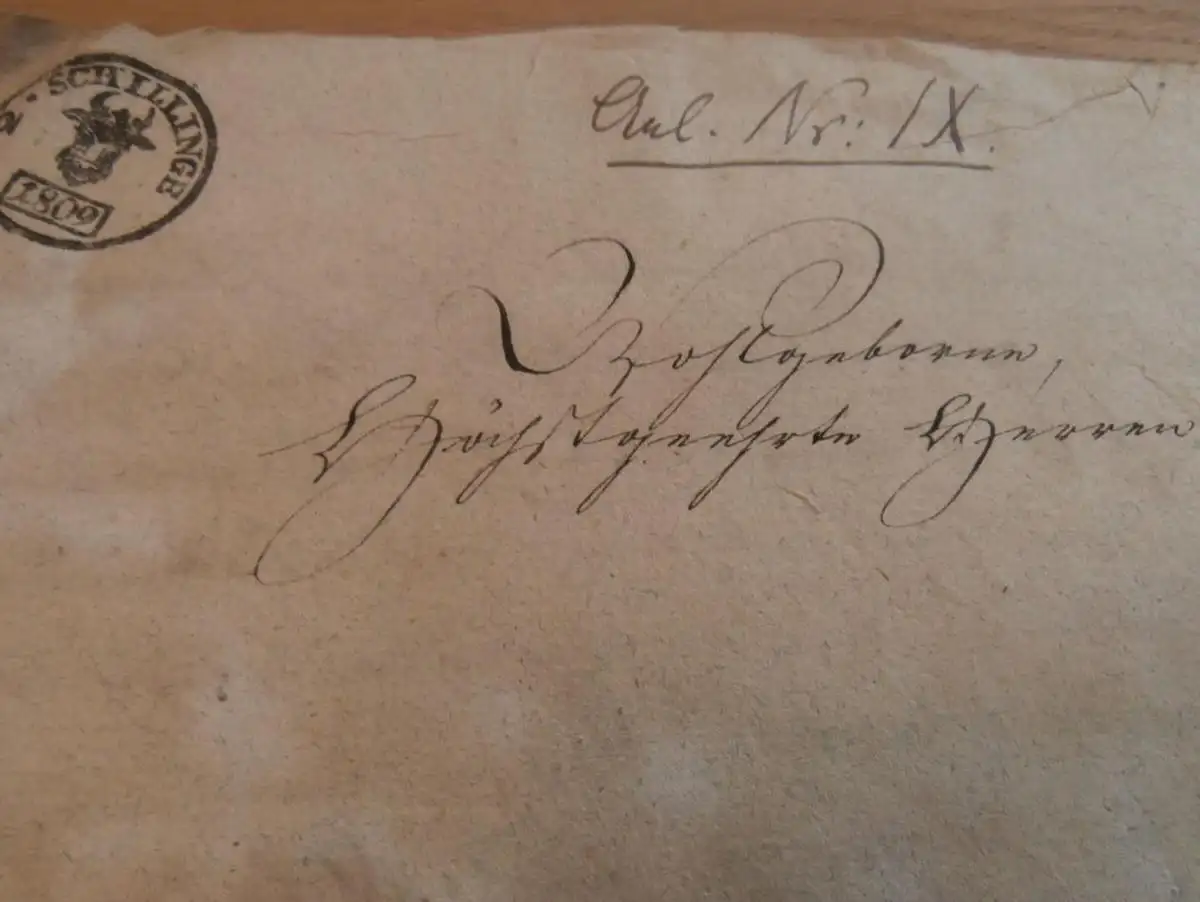 2 · SCHILLINGE
1809
Anl. Nr: IX.
Wohlgeborne,
Höchstgeehrte Herren